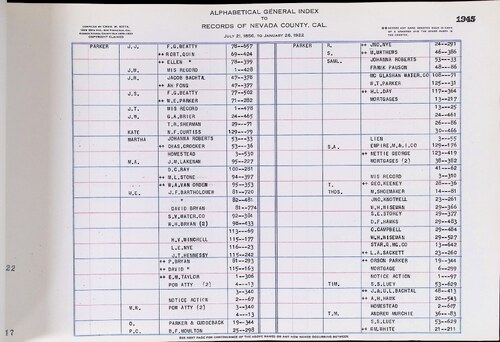 ALPHABETICAL GENERAL INDEX
TO
RECORDS OF NEVADA COUNTY, CAL.
JULY 21, 1856, TO JANUARY 28, 1922
COPYRIGHT
1945
PARKER J.J. F.G.BEATTY 78--457
++ ROBT.QUIN 69--424
++ ELLEN " 78--379
J.W. MIS RECORD 1--428
J.R. JACOB BACHTL 47--378
++ AH FONG 47--377
J.S. F.G.BEATTY 77--502
++ W.E.PARKER 71--282
J.T. MIS RECORD 1--478
J.W. G.A.BRIER 24--465
T.R.SHERMAN 28--71
KATE N.F.CURTISS 129--79
MARTHA JOHANNA ROBERTS 53--33
++ CHAS.CROCKER 53--36
HOMESTEAD 3--530
M.A. J.M.LAKENAN 95--227
D.C.RAY 100--281
++ M.L.STONE 94--377
++ W.A.VAN ORDEN 95--353
M.E. J.F.BARTHOLOMEW 81--720
" 82--481
DAVID BRYAN 81--774
S.V.WATER.CO 92--301
W.H.BRYAN (2) 98--433
113--69
H.V.WINCHELL 115--177
L.E.NYE 116--23
J.T.HENNESSY 115--242
++ P.BRYAN 81--293
++ DAVID " 115--163
++ E.M.TAYLOR 1--306
POR ATTY (2) 4--13
3--340
NOTICE NOTICE 2--67
M.R. POR ATTY (2) 3--340
4--13
O. PARKER & CUDDEBACK 19--344
P.C. B.F.MOULTON 25--298
PARKER R. JNO.NYE 24--291
S. ++ W.MATHEWS 46--388
SAML. JOHANNA ROBERTS 53--33
FRANK PAUSON 48--86
MC GLASHAN WATER.CO 108--71
W.T.PARKER 125--31
++ H.L.DAY 117--364
MORTGAGES 13--217
13--25
24--461
26--86
30--466
LIEN 3--55
S.A. EMPIRE,M.&.I,CO 129--176
++ NETTIE GEORGE 123--419
MORTGAGES (2) 38--362
41--62
MIS RECORD 3--310
T. ++ GEO.KEENEY 28--36
THOS. M.SHOEMAKER 14--81
JNO.KNOTRELL 23--261
W.H.WISEMAN 29--366
S.E.STOREY 29--377
D.F.HAWKS 29--483
C.CAMPBELL 29--484
W.H.WISEMAN 29--527
STAR,G,MG.CO 13--642
++ L.A.SACKETT 23--260
++ ORSON PARKER 19--344
MORTGAGE 6--299
NOTICE ACTION 1--97
TIM. S.S.LUEY 53--629
++ J.& U.L.BACHTAL 48--413
++ A.M.HAHN 20--543
HOMESTEAD 2--607
T.M. ANDREW MURCHIE 36--83
S.S.LUEY 53--629
++ WM.WHITE 21--211
22
17